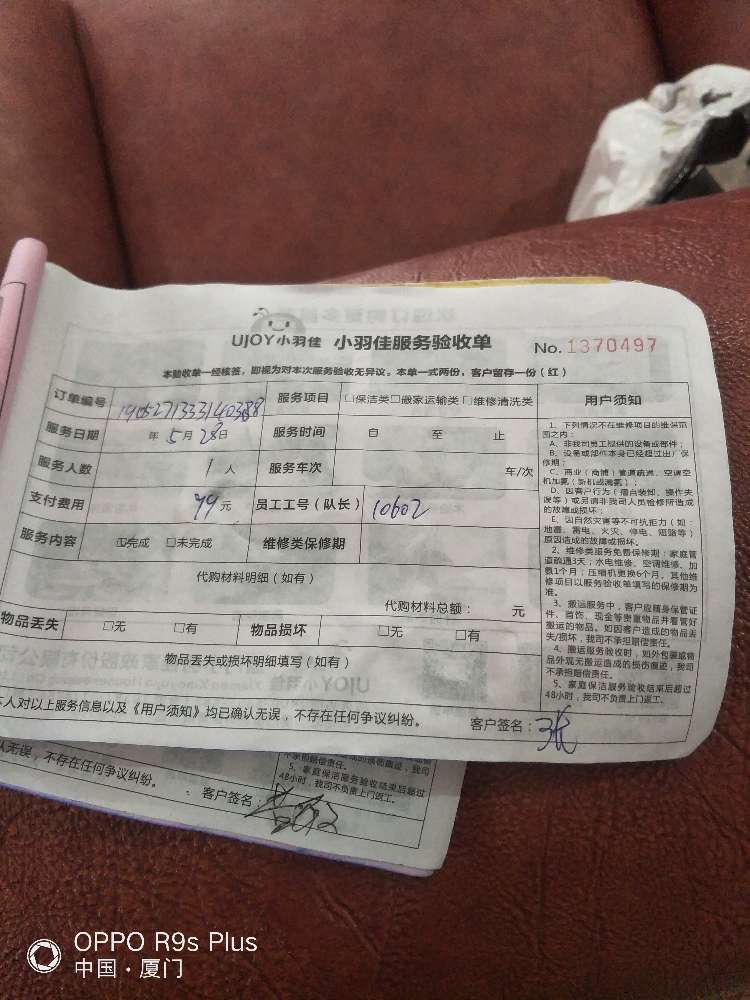 UJOY小羽佳 小羽佳服务验收单 No. 1370497
本验收单一经核签，即视为对本次服务验收无异议。本单一式两份，客户留存一份（红）
订单编号 服务项目 □保洁类□搬家运输类□维修清洗类
服务日期 年 5月 28日 服务时间 自 至 止
服务人数 1 人 服务车次 车/次
支付费用 99 元 员工工号（队长） 10602
服务内容 ☑完成 □未完成 维修类保修期
代购材料明细（如有）
代购材料总额： 元
物品丢失 □无 □有 物品损坏 □无 □有
物品丢失或损坏明细填写（如有）
本人对以上服务信息以及《用户须知》均已确认无误，不存在任何争议纠纷。
客户签名：张
用户须知
1、下列情况不在维修项目的维保范
围之内：
A、非我司员工提供的设备或部件；
B、设备或部件本身已经超过出厂保
修期；
C、商业（商铺）管道疏通、空调空
机加氟（新机或漏氟）；
D、因客户行为（擅自装卸、操作失
误等）或另请非我司人员检修所造成
的故障或损坏；
E、因自然灾害等不可抗拒力（如：
地震、雷电、火灾、停电、短路等）
原因造成的故障或损坏。
2、维修类服务免费保修期：家庭管
道疏通3天；水电维修、空调维修、加
氟1个月；压缩机更换6个月，其他维
修项目以服务验收单填写的保修期为
准。
3、搬运服务中，客户应随身保管证
件、首饰、现金等贵重物品并看管好
搬运的物品。如因客户造成的物品丢
失/损坏，我司不承担赔偿责任。
4、搬运服务验收时，如外包装或物
品外观无搬运造成的损伤痕迹，我司
不承担赔偿责任。
5、家庭保洁服务验收结束后超过
48小时，我司不负责上门返工。
不承担赔偿责任。
5、家庭保洁服务验收结束后超过
48小时，我司不负责上门返工。
认无误，不存在任何争议纠纷。
客户签名：
OPPO R9s Plus
中国·厦门